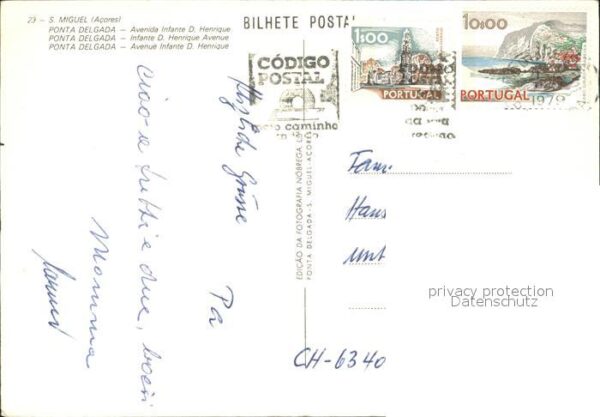 23 - S. MIGUEL (Açores)
PONTA DELGADA — Avenida Infante D. Henrique
PONTA DELGADA — Infante D. Henrique Avenue
PONTA DELGADA — Avenue Infante D. Henrique
BILHETE POSTAL
CÓDIGO
POSTAL
caminho
1$00
PORTUGAL
10$00
PORTUGAL
1979
EDIÇÃO DA FOTOGRAFIA NÓBREGA
PONTA DELGADA - S. MIGUEL - AÇORES
Herzliche Grüsse
Pa
Ciao a tutti e due, bacii
Mamma
Fam.
Hans
CH-6340
privacy protection
Datenschutz